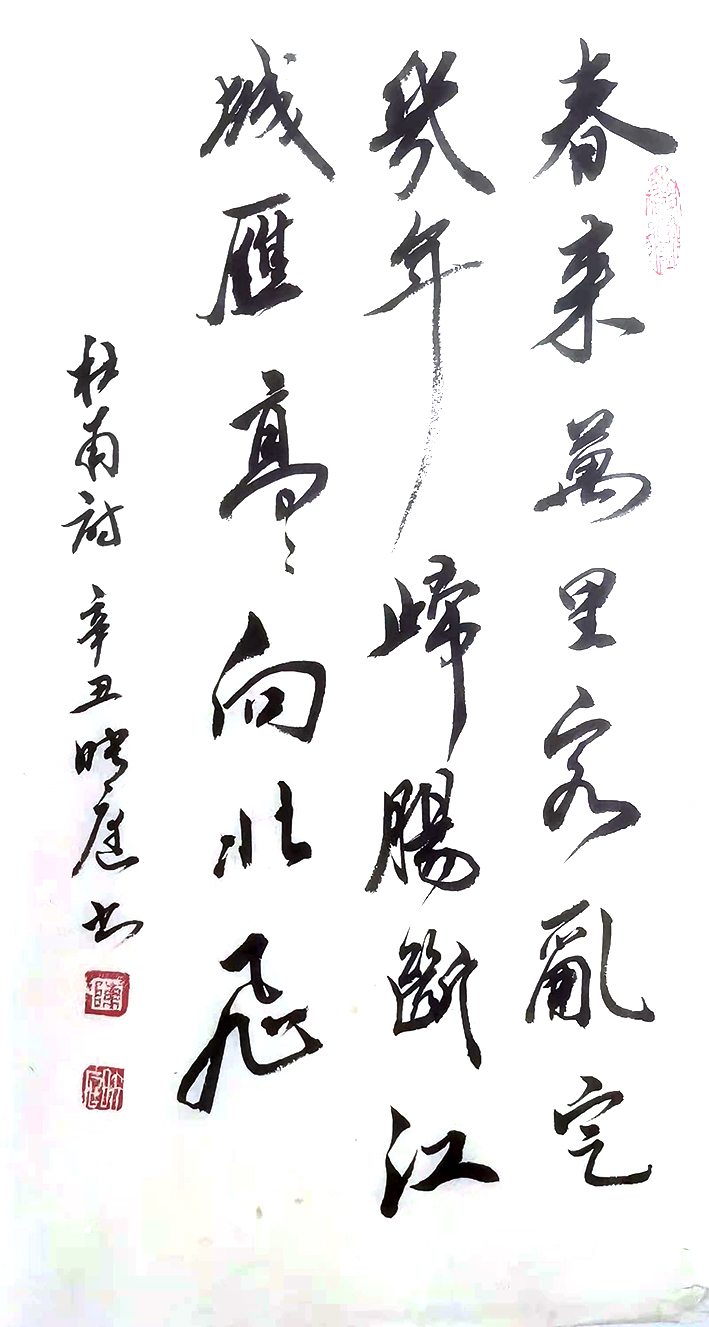 春来萬里客亂定
幾年歸腸斷江
城雁高々向北飛
杜甫詩 辛丑 映庭书
陳